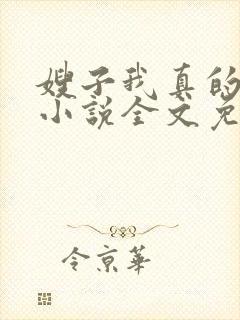 嫂子我真的
小说全文免
令京華